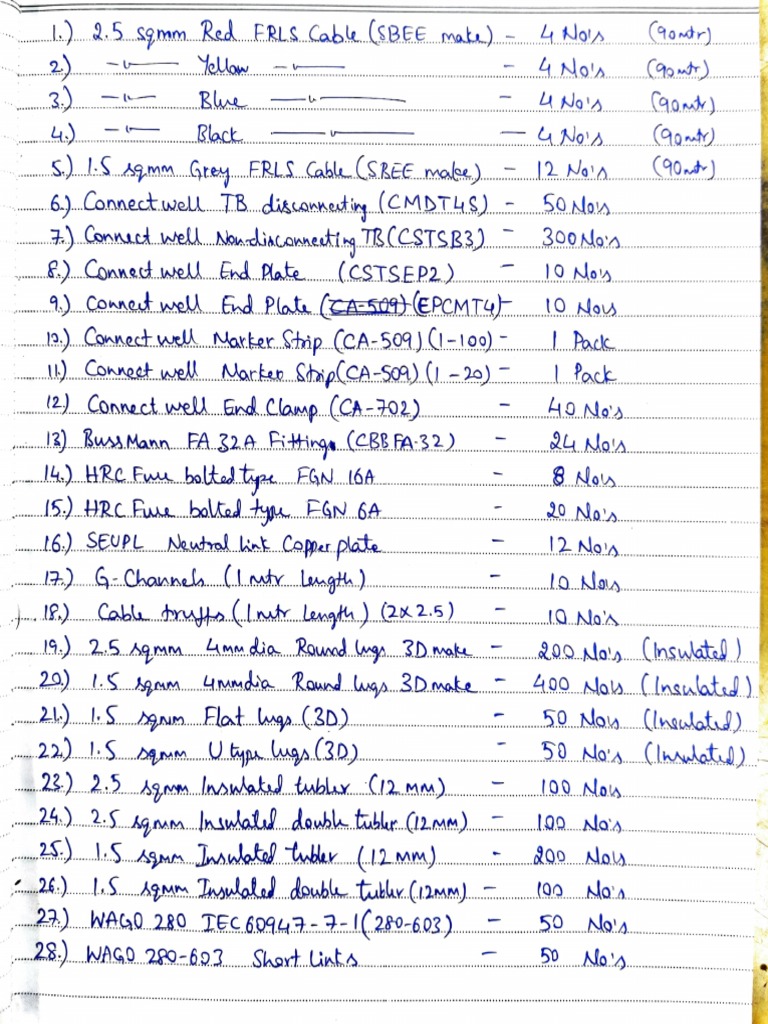 1.) 2.5 sqmm Red FRLS Cable (SBEE make) - 4 No's (90mtr)
2) —"— Yellow —"— - 4 No's (90mtr)
3.) —"— Blue —"— - 4 No's (90mtr)
4.) —"— Black —"— - 4 No's (90mtr)
5.) 1.5 sqmm Grey FRLS Cable (SBEE make) - 12 No's (90mtr)
6.) Connectwell TB disconnecting (CMDT4S) - 50 No's
7.) Connect well Non-disconnecting TB (CSTSB3) - 300 No's
8.) Connect well End Plate (CSTSEP2) - 10 No's
9.) Connect well End Plate (CA-509) (EPCMT4) - 10 No's
10.) Connect well Marker Strip (CA-509) (1-100) - 1 Pack
11.) Connect well Marker Strip (CA-509) (1-20) - 1 Pack
12) Connect well End Clamp (CA-702) - 40 No's
13) BussMann FA 32A Fitting (CBBFA-32) - 24 No's
14.) HRC Fuse bolted type FGN 16A - 8 No's
15.) HRC Fuse bolted type FGN 6A - 20 No's
16.) SEUPL Neutral link Copper plate - 12 No's
17.) G-Channels (1 mtr length) - 10 No's
18.) Cable truffs (1 mtr length) (2x2.5) - 10 No's
19.) 2.5 sqmm 4mm dia Round lugs 3D make - 200 No's (Insulated)
20.) 1.5 sqmm 4mm dia Round lugs 3D make - 400 No's (Insulated)
21.) 1.5 sqmm Flat lugs (3D) - 50 No's (Insulated)
22.) 1.5 sqmm U type lugs (3D) - 50 No's (Insulated)
23.) 2.5 sqmm Insulated tubler (12 MM) - 100 No's
24.) 2.5 sqmm Insulated double tubler (12MM) - 100 No's
25.) 1.5 sqmm Insulated tubler (12 MM) - 200 No's
26.) 1.5 sqmm Insulated double tubler (12MM) - 100 No's
27.) WAGO 280 IEC 60947-7-1 (280-603) - 50 No's
28.) WAGO 280-603 Short links - 50 No's